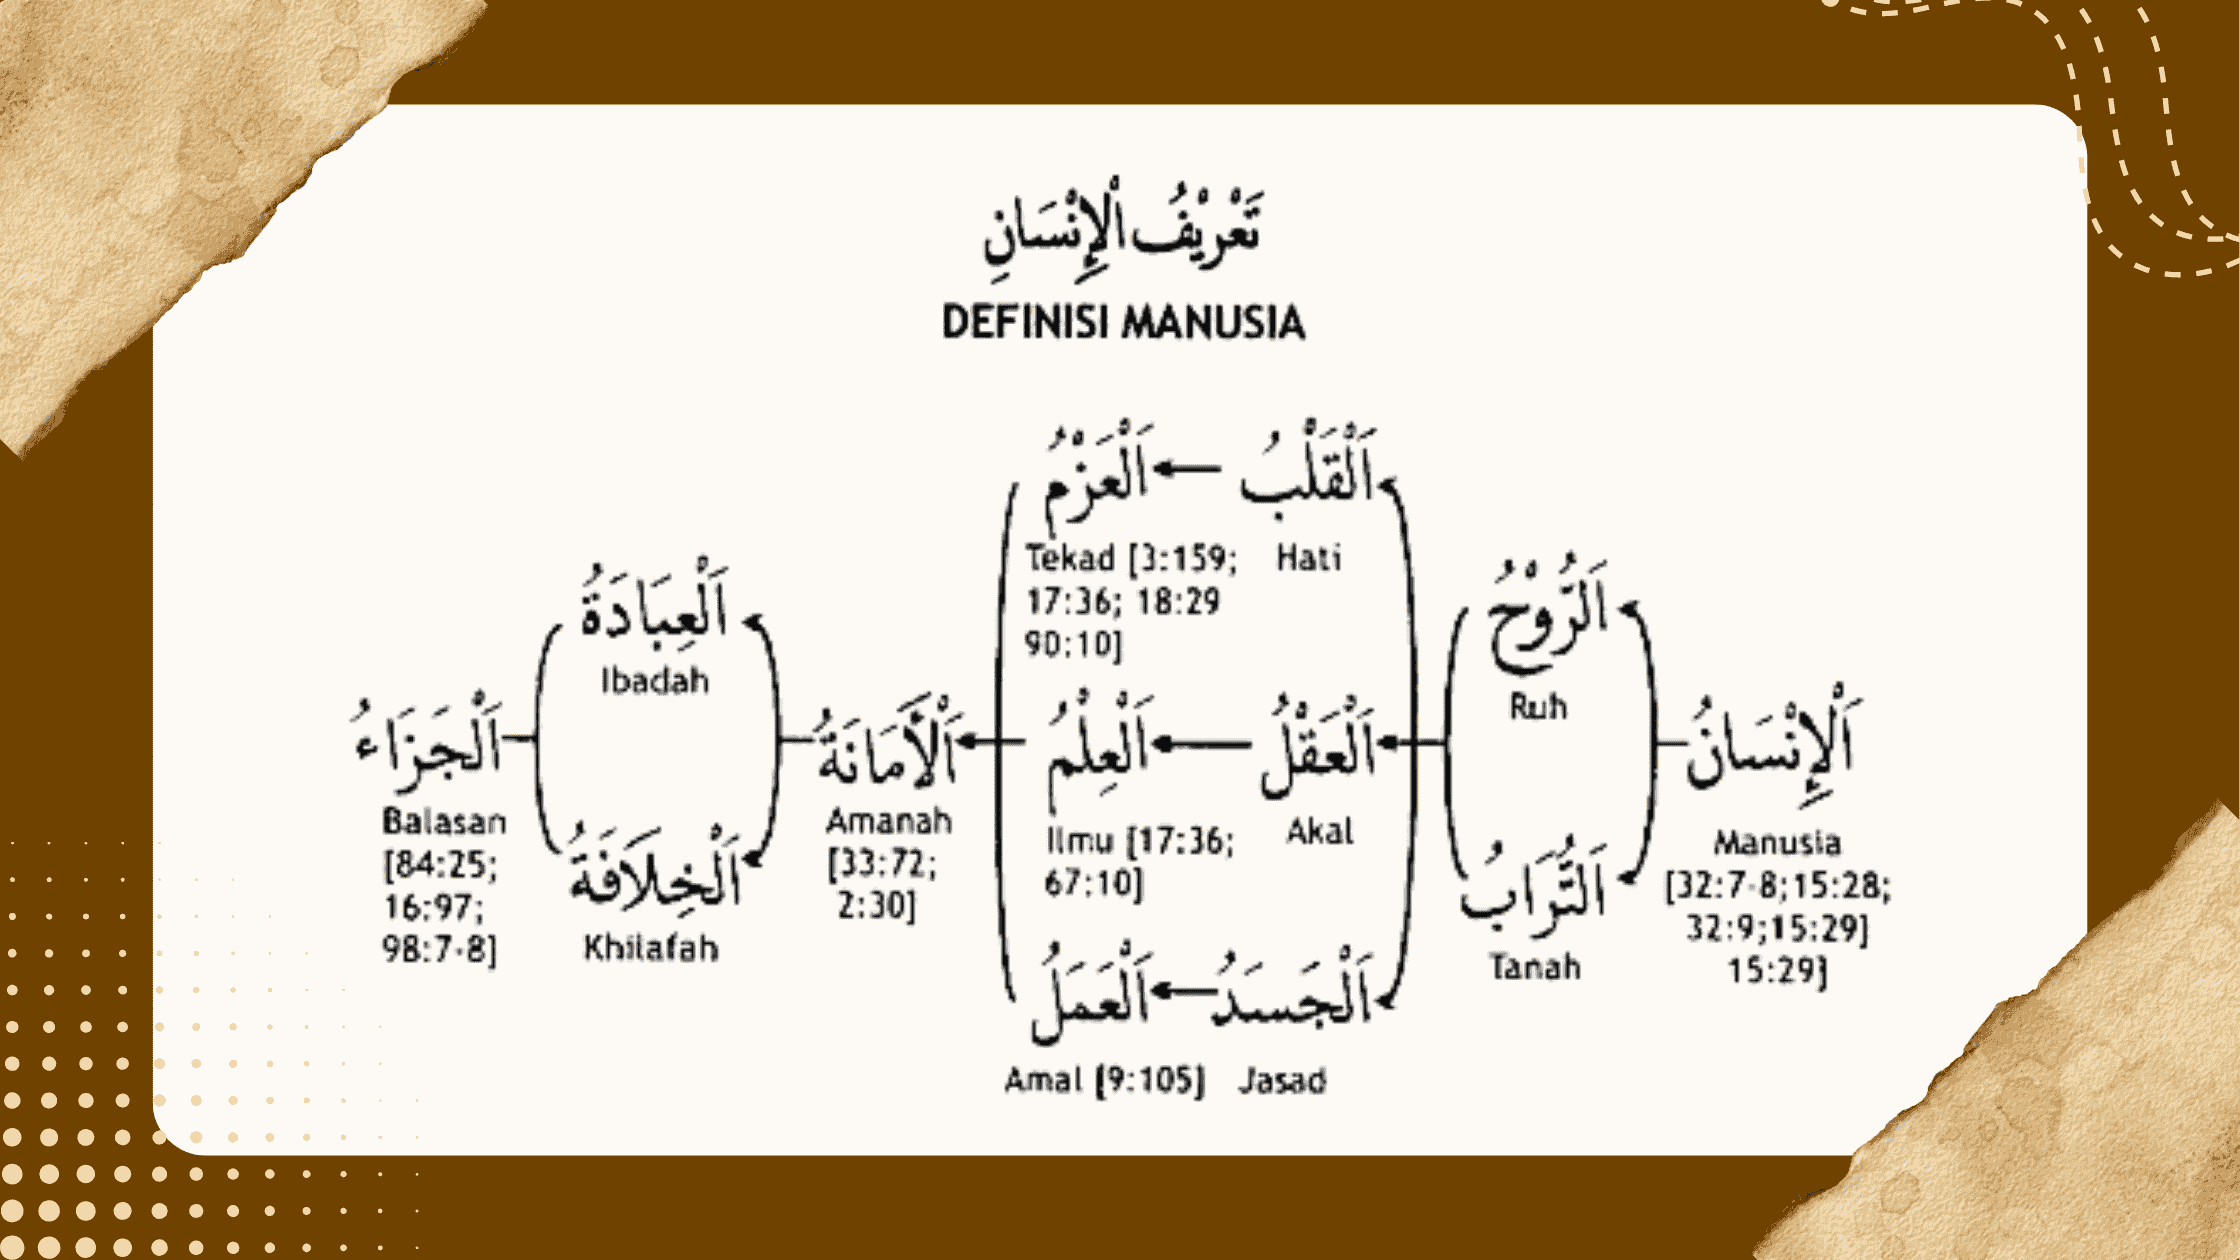 تَعْرِيْفُ اْلإِنْسَانِ
DEFINISI MANUSIA
اَلْإِنْسَانُ
Manusia
[32:7-8;15:28;
32:9;15:29]
15:29]
اَلرُّوْحُ
Ruh
اَلتُّرَابُ
Tanah
اَلْقَلْبُ
Hati
اَلْعَزْمُ
Tekad [3:159;
17:36; 18:29
90:10]
اَلْعَقْلُ
Akal
اَلْعِلْمُ
Ilmu [17:36;
67:10]
اَلْجَسَدُ
Jasad
اَلْعَمَلُ
Amal [9:105]
اَلْأَمَانَةُ
Amanah
[33:72;
2:30]
اَلْعِبَادَةُ
Ibadah
اَلْخِلَافَةُ
Khilafah
اَلْجَزَاءُ
Balasan
[84:25;
16:97;
98:7-8]